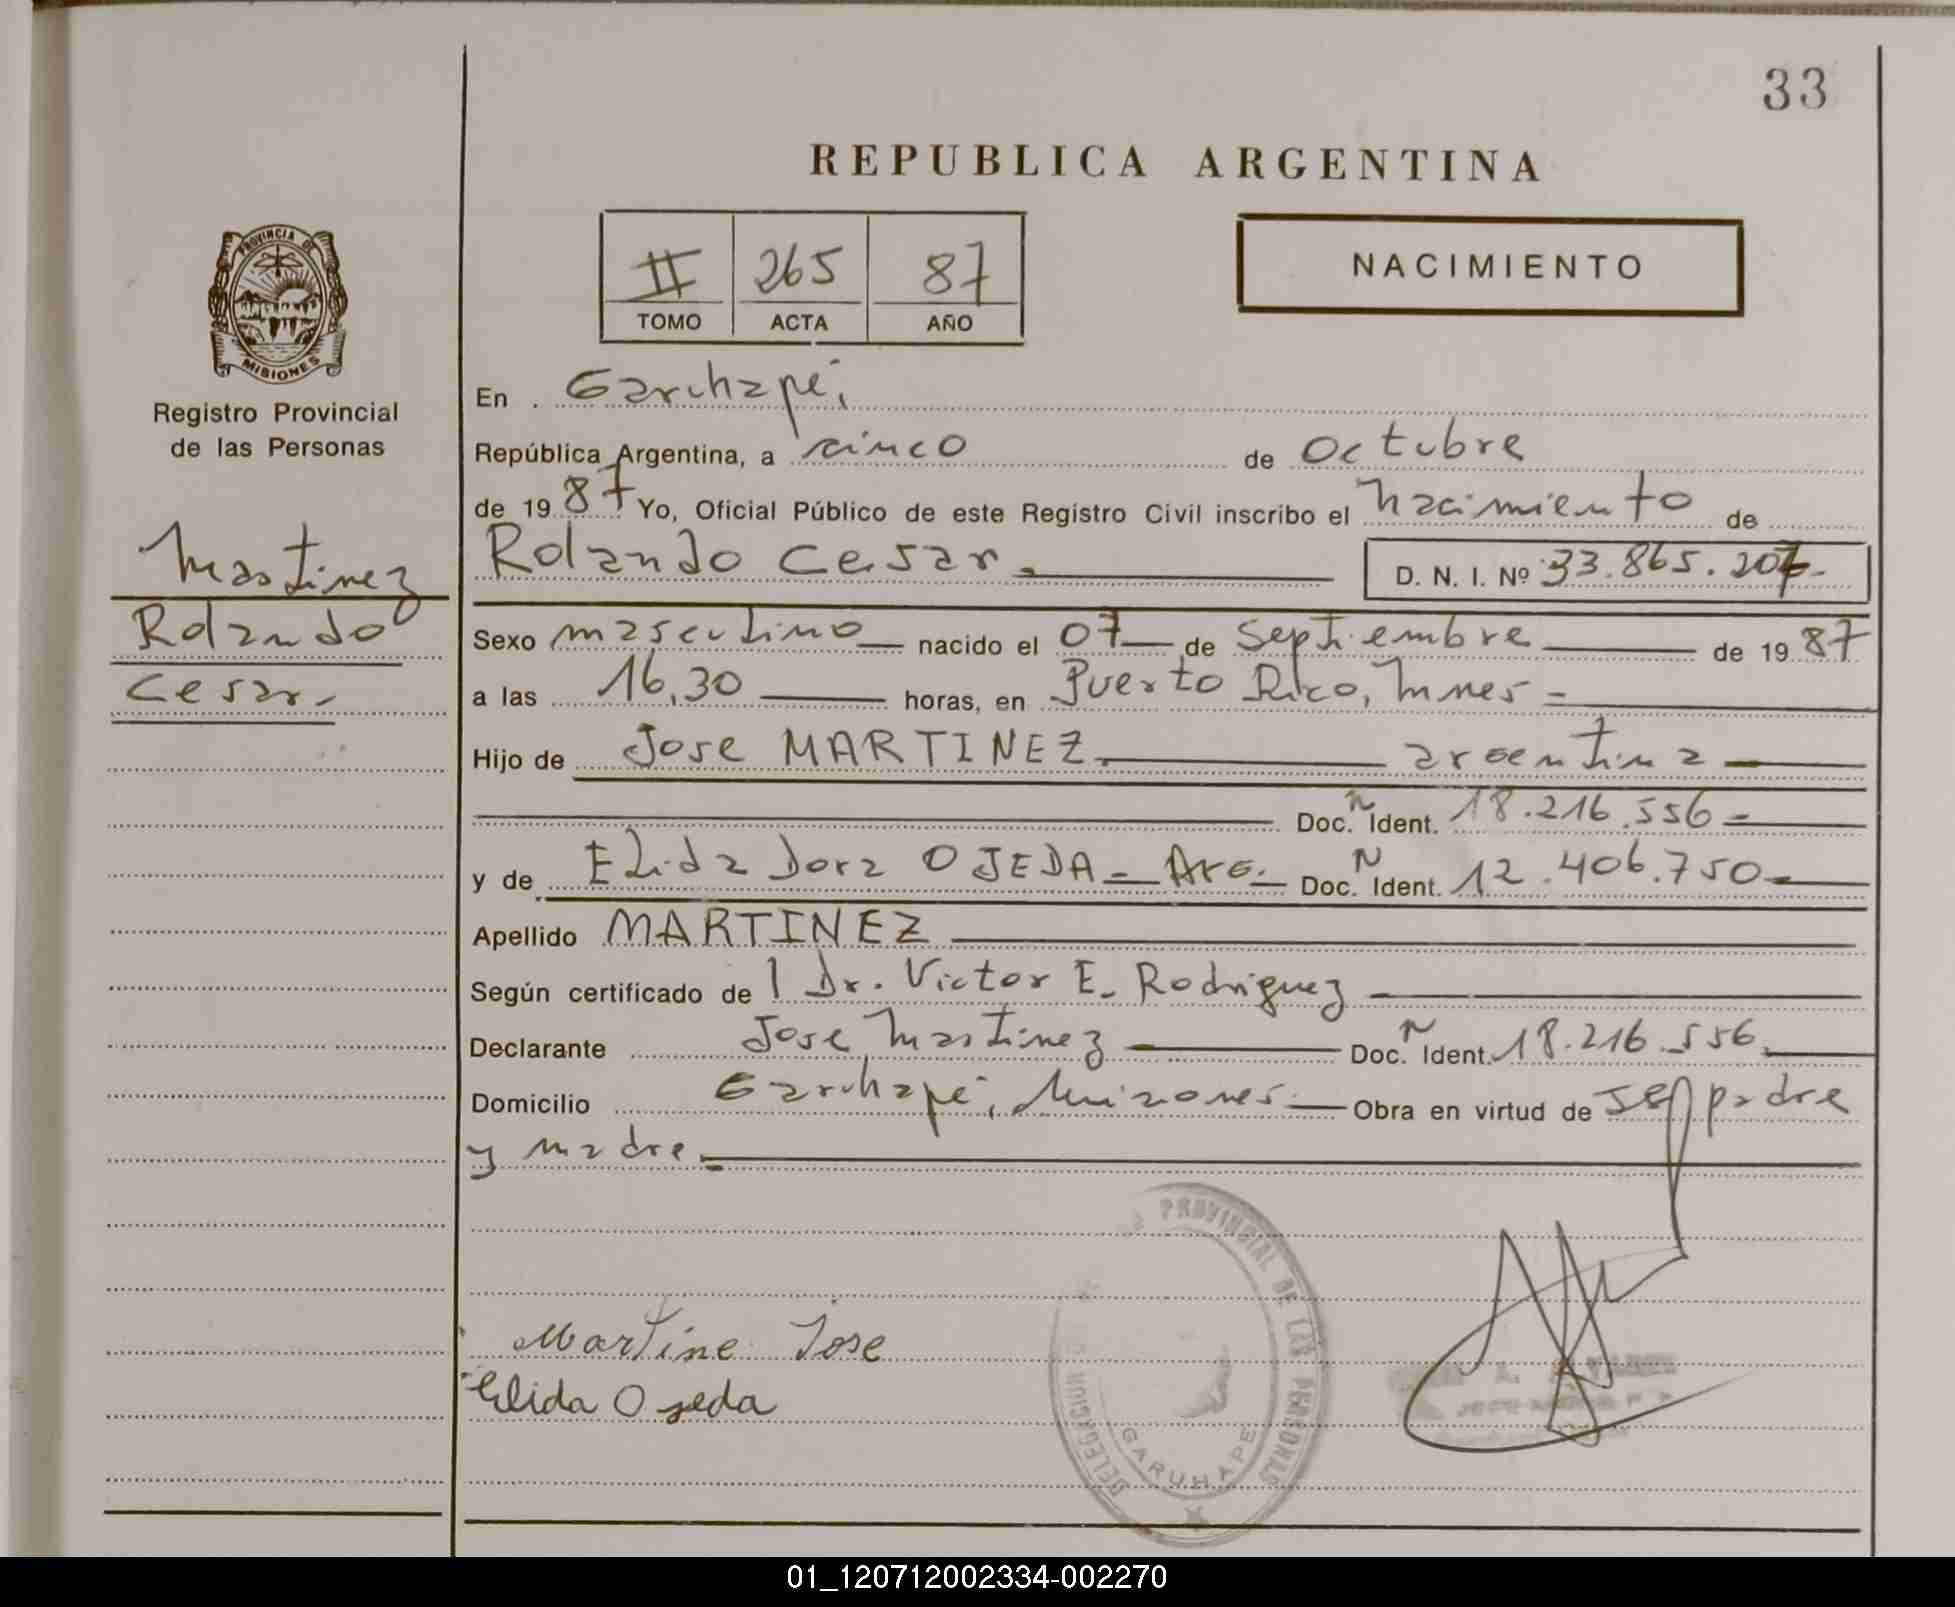 33
REPUBLICA ARGENTINA
PROVINCIA DE
MISIONES
Registro Provincial
de las Personas
Martinez
Rolando
Cesar.-
II 265 87
TOMO ACTA AÑO
NACIMIENTO
En Garuhapé,
República Argentina, a cinco de Octubre
de 1987 Yo, Oficial Público de este Registro Civil inscribo el nacimiento de
Rolando Cesar.- D. N. I. Nº 33.865.207-
Sexo masculino nacido el 07 de Septiembre de 1987
a las 16,30 horas, en Puerto Rico, Mnes -
Hijo de Jose MARTINEZ. argentina
Doc. N Ident. 18.216.556-
y de Elida Dora OJEDA - Arg. Doc. N Ident. 12.406.750-
Apellido MARTINEZ
Según certificado de l Dr. Victor E. Rodriguez -
Declarante Jose Martinez - Doc. N Ident. 18.216.556.
Domicilio Garuhapé, Misiones - Obra en virtud de ser padre
y madre.-
Martine Jose
Elida Ojeda
PROVINCIAL DE LAS PERSONAS
DELEGACION
GARUHAPE
01_120712002334-002270